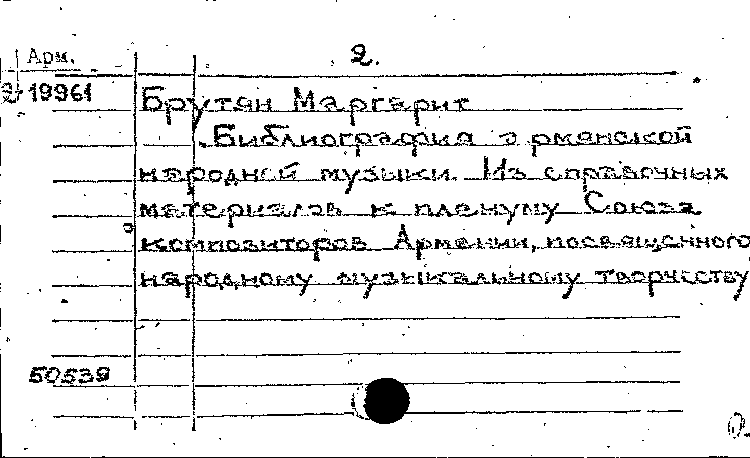 Арм.
2.
2
19961
Брутян Маргарит
Библиография армянской
народной музыки. Из справочных
материалов к пленуму Союза
композиторов Армении, посвященного
народному музыкальному творчеству
50539